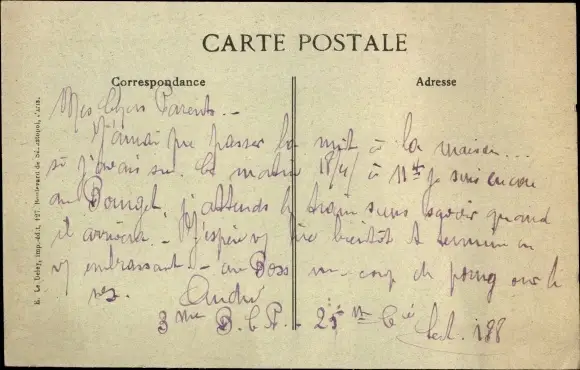 CARTE POSTALE
Correspondance
Adresse
Mes Chers Parents. -
J'aurai pu passer la nuit à la maison...
si j'avais su. Ce matin 18/4/ à 11h je suis encore
au Bourget, j'attends le train sans savoir quand
il arrivera. - J'espère y être bientôt & termine en
vs embrassant. - au Boss un coup de poing sur le
nez. André
3me D.C.A. - 25 me Cie Sect. 188
E. Le Deley, imp.-édit., 127, Boulevard de Sébastopol, Paris.